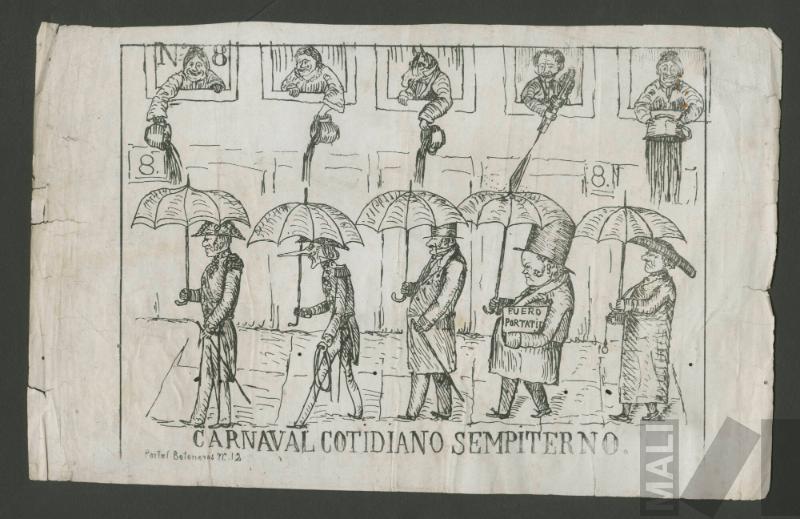 Nº 8
8.
8.
FUERO
PORTATIL
CARNAVAL COTIDIANO SEMPITERNO.
Portal Botoneros Nº. 12
MALI